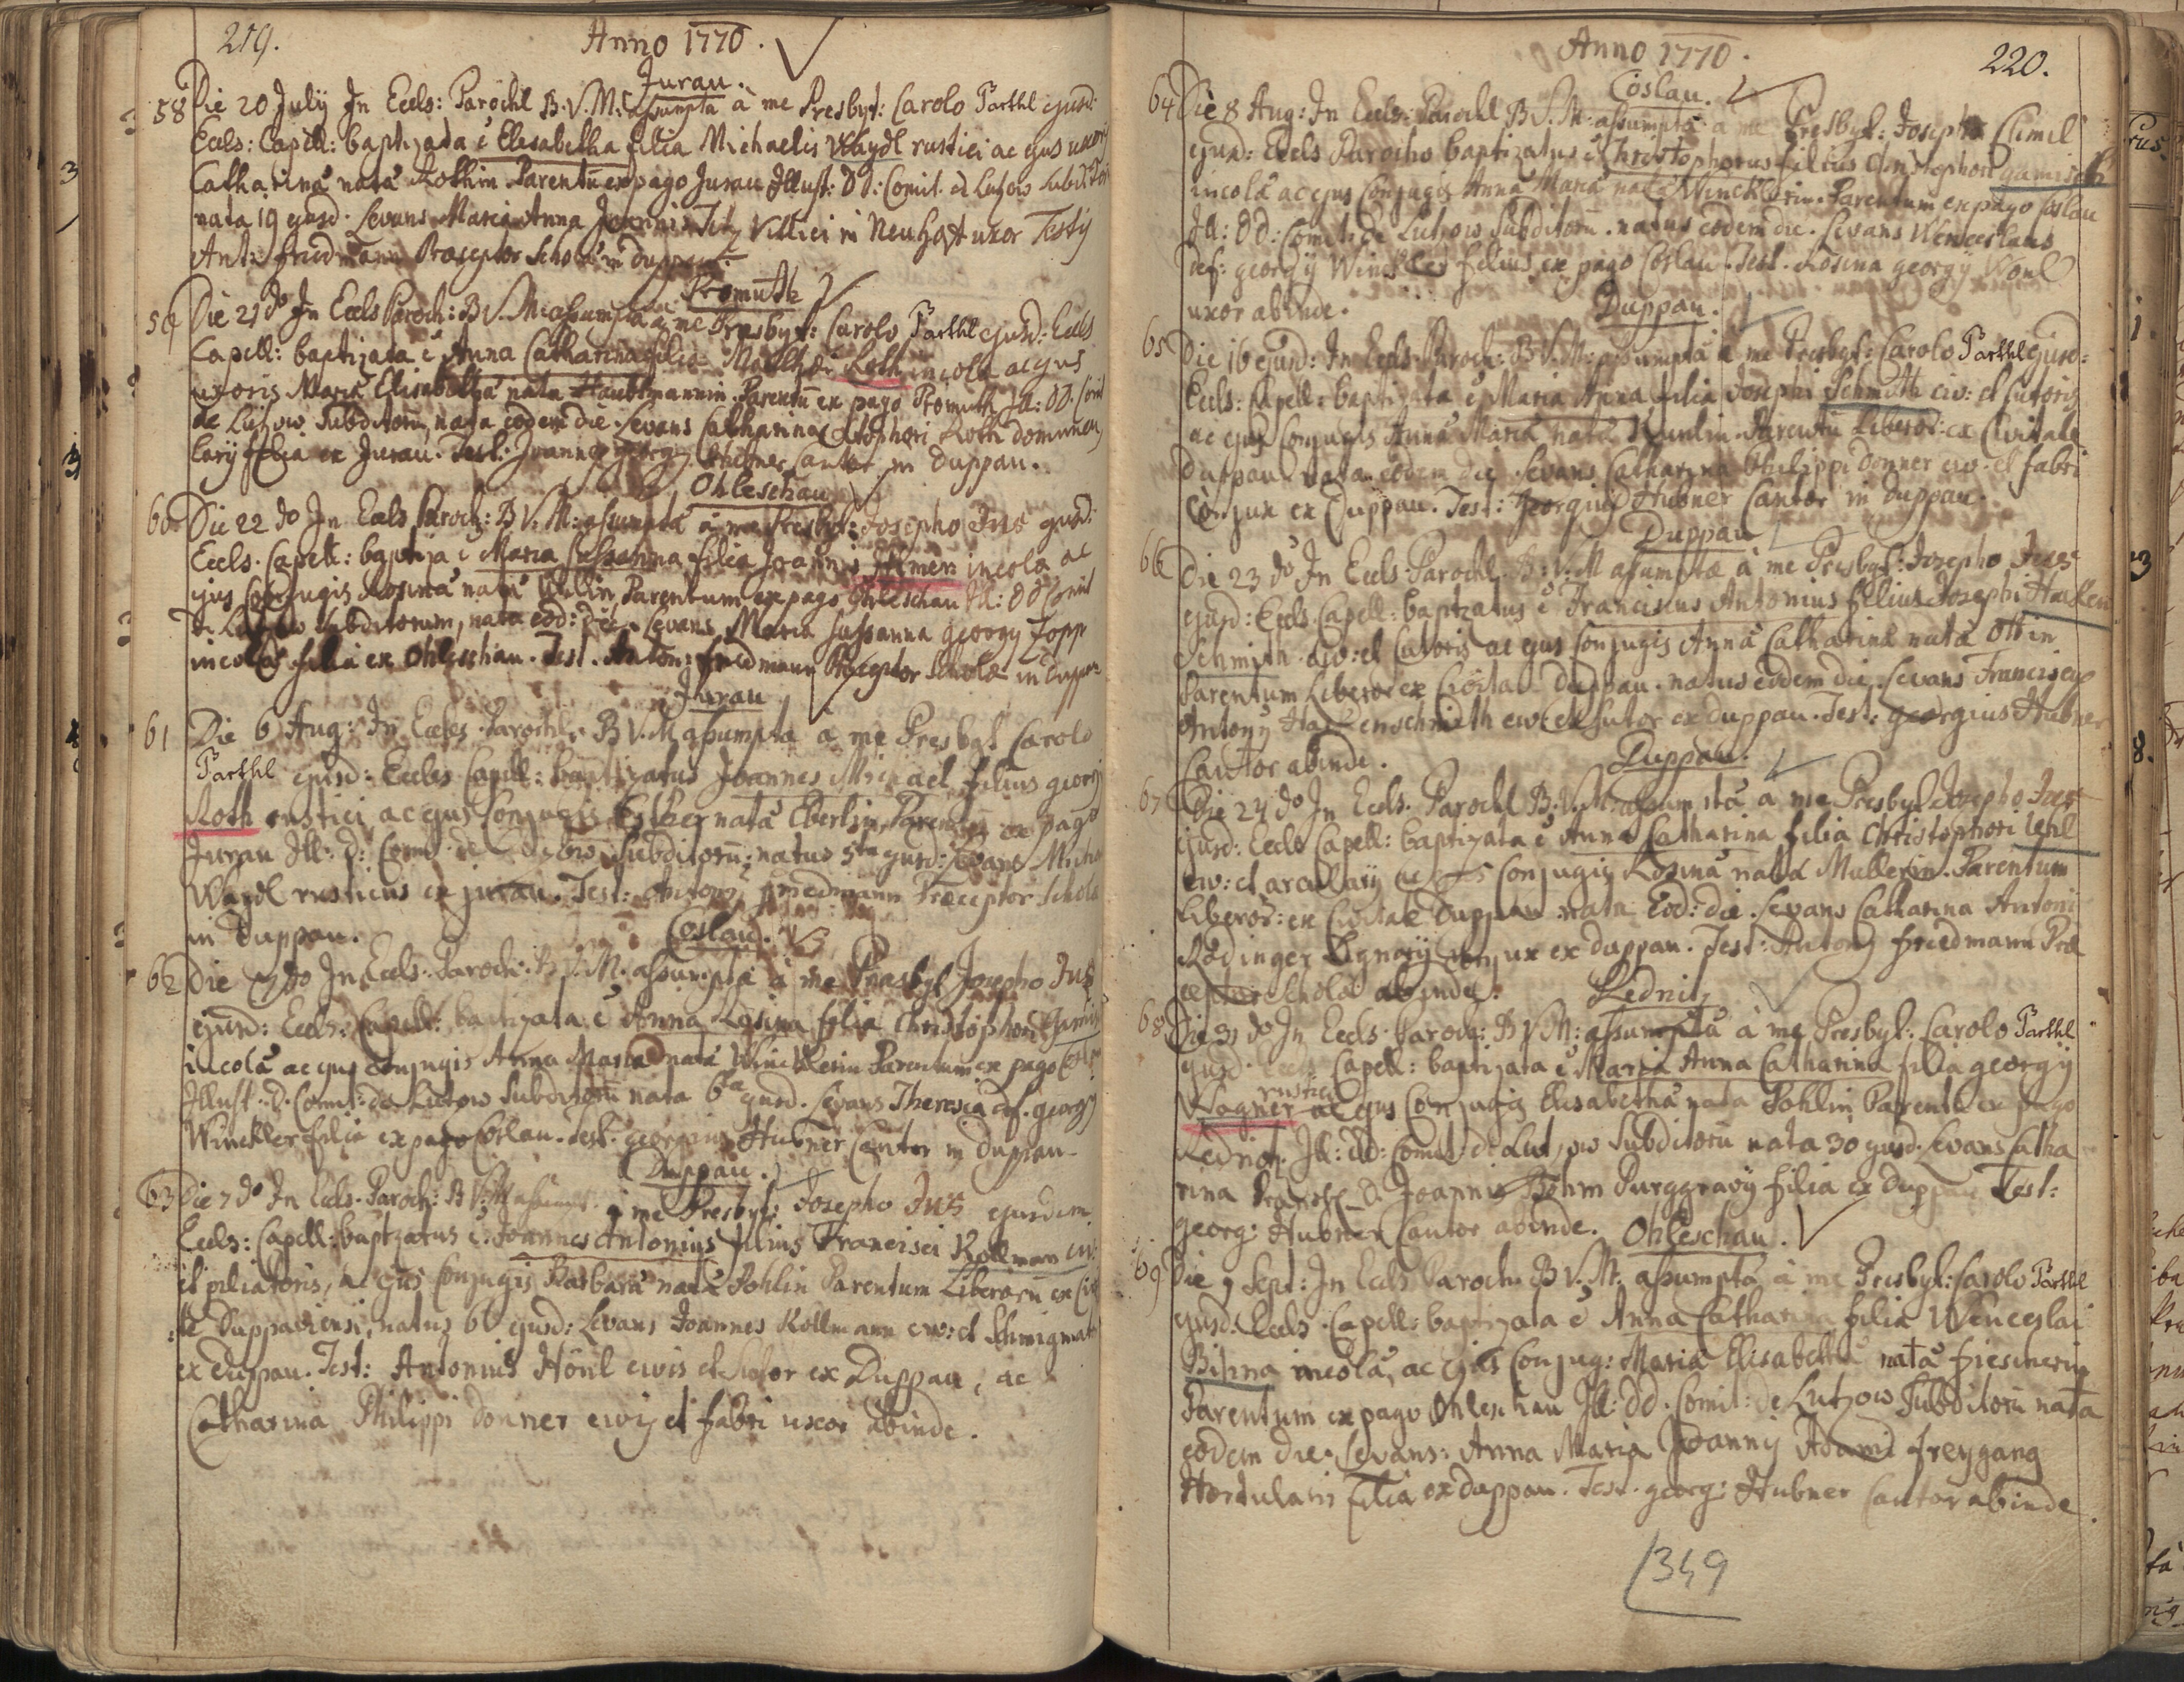 219.
Anno 1770.
Jurau.
58 Die 20 July In Eccls: Parochl B.V.M. assumpta à me Presbyt: Carolo Parthl ejusd:
Eccls: Capell: baptizata è Elisabetha filia Michaelis Waydl rustici ac ejus uxoris
Catharina nata Rothin Parentū ex pago Jurau Illust: DD: Comit. de Lutzow Subdit
nata 19 ejusd. Levans Maria Anna Joannis Titz Villici in Neuhof uxor Testis
Ant: Friedmann Præceptor Schola in duppau.
Promuth
59 Die 21 do In Eccls Paroch: B V. M: assumpta à me Presbyt: Carolo Parthl ejusd: Eccls
Capell: baptizata è Anna Catharina filia Roth incola ac ejus
uxoris Maria Elisabetha nata Haubtmannin. Parentū ex pago Promuth Ill: DD. Comit
de Lutzow Subditorū, nata eodem die. Levans Catharina Xtophori Roth
filia ex Jurau. Test. Joannes Georg Hubner Cantor in duppau.
Ohleschau
60 Die 22 do In Eccls Paroch: B V. M: assumpta à me Presbyt: Josepho Jus ejusd:
Eccls. Capell: baptiza è Maria Sussanna filia Joannis incola ac
ejus Conjugis Rosina nata Parentum ex pago Ohleschau Ill: DD Comit
de Lutzow Subditorum, nata eod: die. Levans Maria Sussanna Georgy Topp
incola filia ex Ohleschau. Test. Anton: Friedmann Præceptor Schola in duppau
Jurau
61 Die 6 Aug: In Eccles. Parochl. B V. M assumpta à me Presbyt Carolo
Parthl ejusd: Eccles Capell: baptizatus Joannes Michael filius georgi
Roth rustici ac ejus Conjugis Esther nata Eberlin, Parentum ex pago
Jurau Ill: D: Comit de Lutzow Subditorū: natus 5ta ejusd: Levans Micha
Waydl rusticus ex jurau. Test: Antony Friedmann Præceptor Schola
in duppau.
Coslau.
62 Die 7 do In Eccls. Paroch: B V. M. assumpta à me Presbyt Josepho Jus
ejusd: Eccls: Capell: baptizata è Anna Rosina filia Christophori
incola ac ejus conjugis Anna Maria nata Wincklerin Parentum ex pago Cos
Illust. D. Comit: de Lutzow Subditorū nata 6ta ejusd. Levans Theresia def. georgy
Winckler filia ex pago Coslau. Test. georgius Hubner Cantor in duppau.
Duppau.
63 Die 7 do In Eccls. Paroch: B V: M assumpt. à me Presbyt: Josepho Jus ejusdem
Eccls: Capell: baptzatus è Joannes Antonius filius Francisci Kollman civ:
et piliatoris, ac ejus Conjugis Barbara nata Pohlin Parentum Liberorū ex Civi
te Duppaviensi, natus 6 ejusd: Levans Joannes Kollmann civ: et
ex duppau. Test: Antonius Hönl civis et Sutor ex Duppau, ac
Catharina Philippi donner civis et fabri uxor abinde.
Anno 1770.
220.
Coslau.
64 Die 8 Aug: In Eccls: Parochl B.V.M. assumpta à me Presbyt: Josepho Climil
ejusd: Eccls Parocho baptizatus è Christophorus filius Christophori
incola ac ejus Conjugis Anna Maria nata Wincklerin. Parentum ex pago Coslau
Ill: DD: Comit: de Lutzow Subditorū. natus eodem die. Levans Wenceslaus
def: georgy Winckler filius ex pago Coslau. Test. Rosina georgy Wonl
uxor abinde.
Duppau.
65 Die 16 ejusd: In Eccls. Paroch: B V. M: assumpta à me Presbyt: Carolo Parthl ejusd:
Eccls: Capell: baptizata è Maria Anna filia Josephi Schmidth civ: et Sutoris
ac ejus Conjugis Anna Maria nata Parentū Liberor: ex Civitate
duppau nata eodem die. Levans Catharina Philippi donner civ. et fabri
Conjux ex duppau. Test: Georgius Hübner Cantor in duppau.
Duppau
66 Die 23 do In Eccls. Parochl. B: V: M assumptæ à me Presbyt: Josepho Jus
ejusd: Eccls. Capell: baptizatus è Franciscus Antonius filius Josephi Hacken
Schmith civ: et Sutoris ac ejus Conjugis Anna Catharina nata Ottin
Parentum Liberor ex Civitate duppau. natus eodem die. Levans Franciscus
Antony Hackenschmidth civ: et Sutor ex duppau. Test: georgius Hubner
Cantor abinde.
Duppau.
67 Die 24 do In Eccls. Parochl B.V.M: assumpta à me Presbyt Josepho Jus
ejusd: Eccls Capell: baptizata è Anna Catharina filia Christophori
civ: et arcularÿ ac ejus Conjugis Rosina nata Mullerin. Parentum
Liberor: ex Civitate Duppau nata Eod: die. Levans Catharina Antoni
Rödinger Lignarÿ conjux ex duppau. Test: Antony Friedmann Præ
ceptor Schola abinde.
Rednitz
68 Die 31 do In Eccls. Paroch: B V M: assumpta à me Presbyt: Carolo Parthl
ejusd. Eccls Capell: baptizata è Maria Anna Catharina filia georgy
rustici
Wagner ac ejus Conjugis Elisabetha nata Pohlin Parentū ex pago
Rednitz. Ill: DD: Comit: de Lutzow Subditorū nata 30 ejusd. Levans Catha
rina D. Joannis Böhm Purggravÿ filia ex duppau Test:
georg: Hubner Cantor abinde.
Ohleschau.
69 Die 9 Sept: In Eccls Paroch: B V. M. assumpta à me Presbyt: Carolo Parthl
ejusd: Eccls. Capell: baptizata è Anna Catharina filia Wenceslai
incola, ac ejus Conjug: Maria Elisabetha nata
Parentum ex pago Ohleschau Ill: DD. Comit: de Lutzow Subditorū nata
eodem die. Levans: Anna Maria Joannis Adami Freygang
Hortulani filia ex duppau. Test. georg: Hubner Cantor abinde.
1349